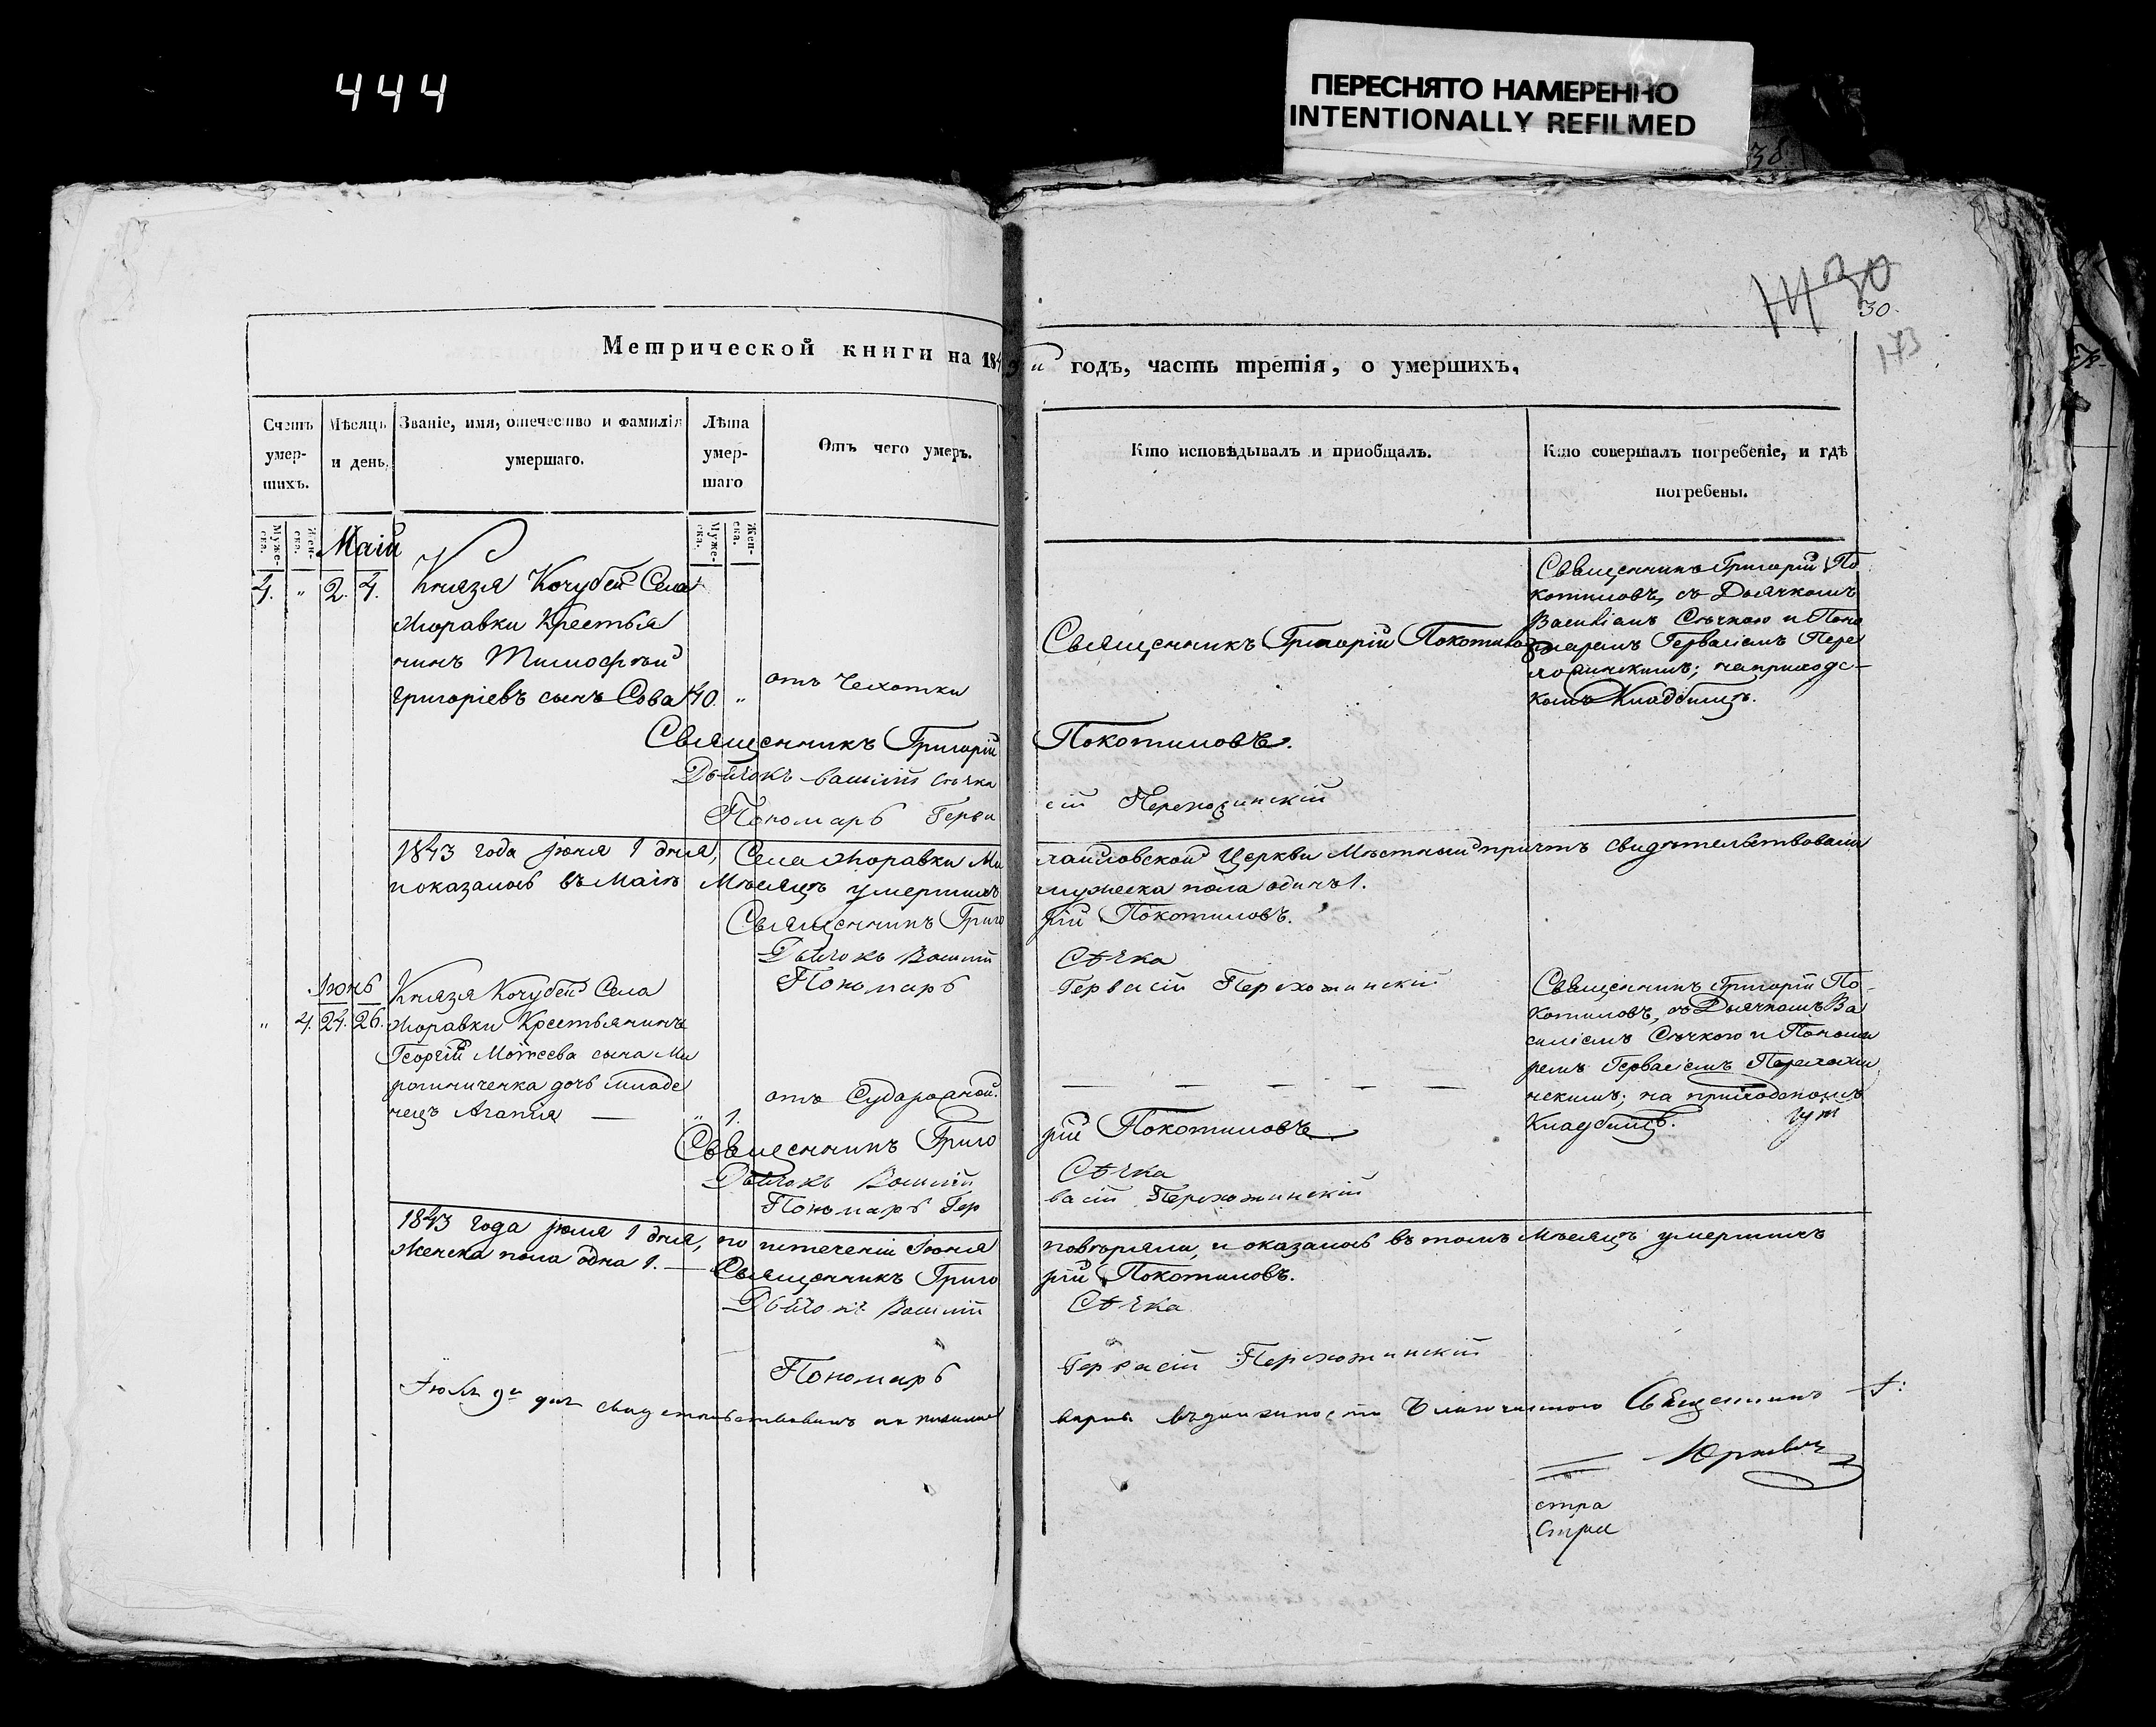 444
ПЕРЕСНЯТО НАМЕРЕННО
INTENTIONALLY REFILMED
38
30
30.
173
Метрической книги на 1843й годъ, часть третія, о умершихъ.
Счетъ умер-шихъ.
Мѣсяцъ и день.
Званіе, имя, отечество и фамилія умершаго.
Лѣта умер-шаго
Отъ чего умеръ.
Кто исповѣдывалъ и пріобщалъ.
Кто совершалъ погребеніе, и гдѣ погребены.
Муже-ска.
Жен-ска.
Муже-ска.
Жен-ска.
Маій
4. " 2. 4.
Князя Кочубей Села
Моравки Крестья
нинъ Тимофтій
Григоріевъ сынъ Сова 40. "
отъ Чехотки
Священникъ Григорій Покотиловъ
Священникъ Григорій По
котиловъ, съ Дьячкомъ
Василіемъ Сѣчкою и Поно
маремъ Гервасіемъ Пере
хожинскимъ; на приходс-
комъ Кладбищѣ.
Священникъ Григорій Покотиловъ.
Дьячокъ Василій Сѣчка
Пономарь Гервасій Перехожинскій
1843 года Іюня 1 дня, Села Моравки Михайловской Церкви Мѣстный причтъ свидѣтельствовали
показалось въ Маіѣ Мѣсяцѣ умершихъ мужеска пола одинъ 1.
Священникъ Григорій Покотиловъ.
Дьячокъ Василій Сѣчка
Пономарь Гервасій Перехожинскій
Іюнь
" 4. 24. 26.
Князя Кочубей Села
Моравки Крестьянина
Георгій Моѵсеева сына Ми
рочниченка дочь младе
нецъ Агапія — " 1.
отъ Судорожной.
Священникъ Григорій По-
котиловъ, съ Дьячкомъ Ва
силіемъ Сѣчкою и Понома
ремъ Гервасіемъ Перехожи
нскимъ; на приходскомъ
Кладбищѣ.
Священникъ Григорій Покотиловъ
Дьячокъ Василій Сѣчка
Пономарь Гервасій Перехожинскій
1843 года Іюля 1 дня, по истеченіи Іюня повѣряли, и оказалось въ томъ Мѣсяцѣ умершихъ
женска пола одна 1. —
Священникъ Григорій Покотиловъ.
Дьячокъ Василій Сѣчка
Пономарь Гервасій Перехожинскій
Іюля 9го дня свидетельствовалъ въ должности Благочиннаго Священникъ
Юркевичъ
стра
Стра